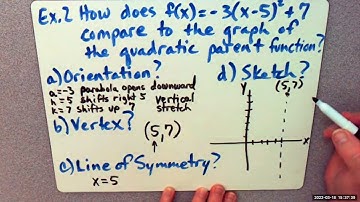 Ex.2 How does f(x)=-3(x-5)²+7
compare to the graph of
the quadratic parent function?
a) Orientation?
a=-3 parabola opens downward
h=5 shifts right 5 vertical
k=7 shifts up 7 stretch
b) Vertex?
(5,7)
c) Line of Symmetry?
x=5
d) Sketch?
(5,7)
y
x